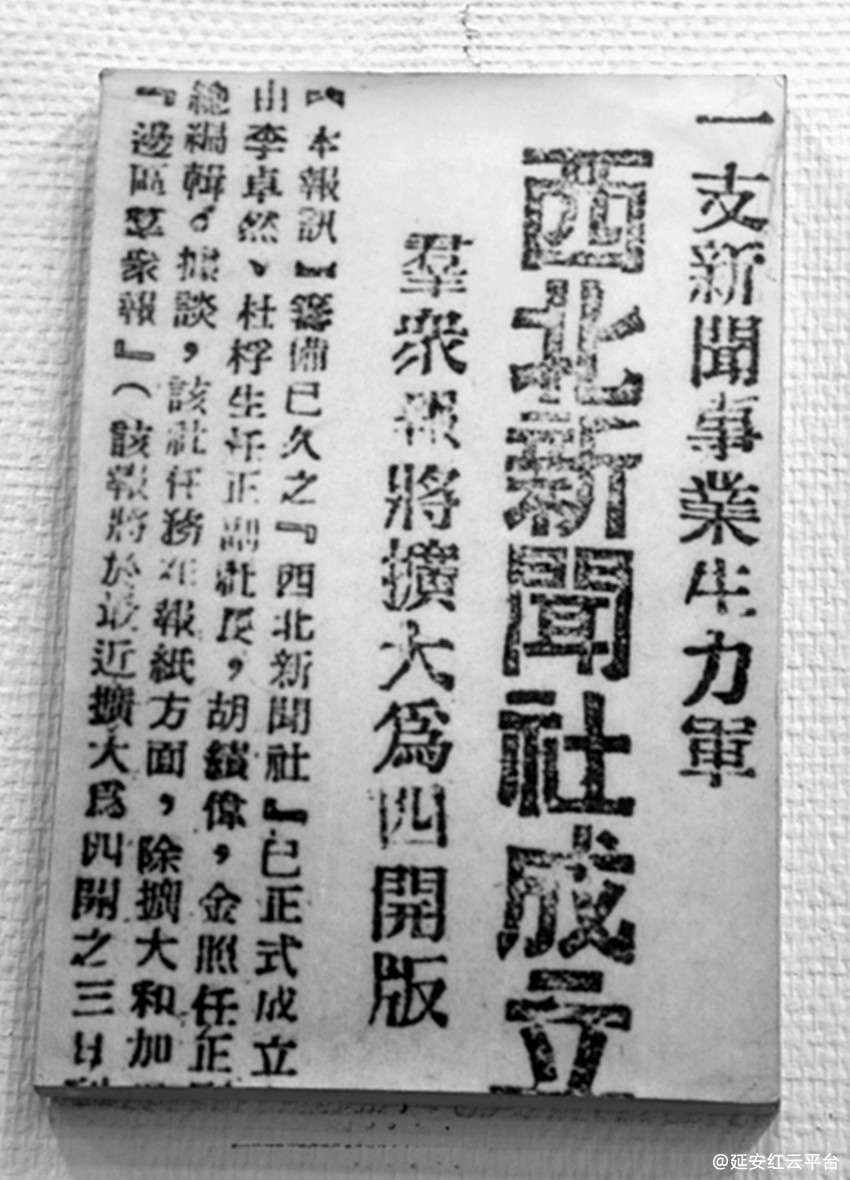 一支新聞事業生力軍
西北新聞社成立
羣衆報將擴大爲四開版
【本報訊】籌備已久之『西北新聞社』已正式成立
由李卓然、杜桴生任正副社長，胡績偉，金照任正
總編輯。據談，該社任務在報紙方面，除擴大和加
『邊區羣衆報』（該報將於最近擴大爲四開之三日
@延安红云平台